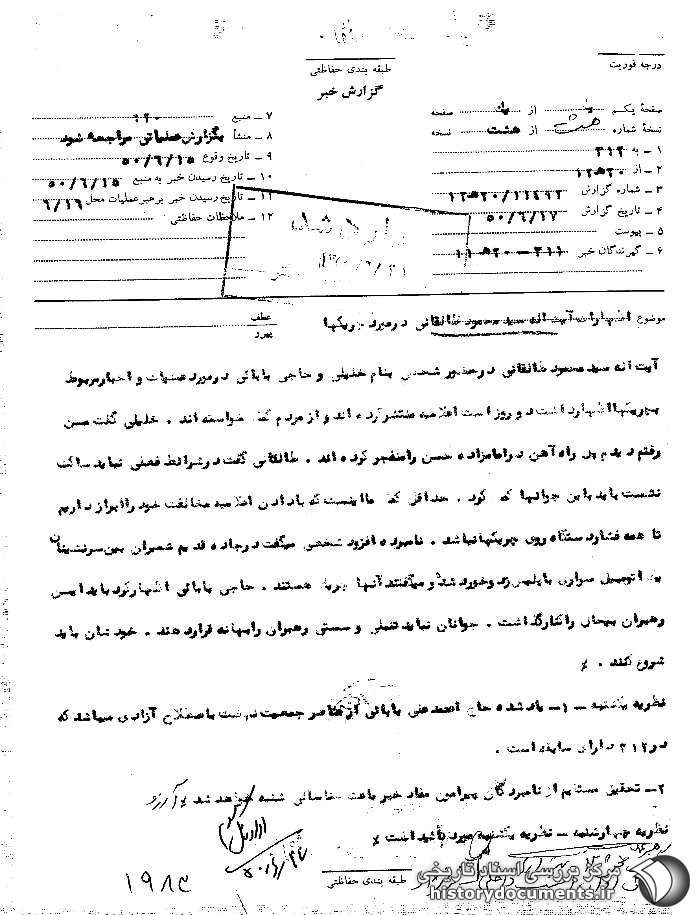 درجه فوریت
طبقه بندی حفاظتی
گزارش خبر
صفحه یکم از یک صفحه
نسخه شماره هشت از هشت نسخه
۱ - به ۳۱۲
۲ - از ۲۰ه۱۲
۳ - شماره گزارش ۱۱۴۹۲/۲۰ه۱۲
۴ - تاریخ گزارش ۵۰/۶/۱۷
۵ - پیوست
۶ - گیرندگان خبر ۳۱۱ - ۲۰ه۱۱
۷ - منبع
۸ - منشأ بگزارش عملیاتی مراجعه شود
۹ - تاریخ وقوع ۵۰/۶/۱۵
۱۰ - تاریخ رسیدن خبر به منبع ۵۰/۶/۱۵
۱۱ - تاریخ رسیدن خبر برهبر عملیات محل ۶/۱۶
۱۲ - ملاحظات حفاظتی
موضوع اظهارات آیت اله سید محمود طالقانی در مورد چریکها
عطف
پیرو
آیت اله سید محمود طالقانی در حضور شخصی بنام خلیلی و حاجی بابائی در مورد عملیات و اخبار مربوط
بچریکها اظهار داشت دو روز است اعلامیه منتشر کرده اند و از مردم کمک خواسته اند . خلیلی گفت من
رفتم دیدم پل راه آهن در امامزاده حسن را منفجر کرده اند . طالقانی گفت در شرائط فعلی نباید ساکت
نشست باید باین جوانها کمک کرد . حداقل کمک ما اینست که با دادن اعلامیه مخالفت خود را ابراز داریم
تا همه فشار دستگاه روی چریکها نباشد . نامبرده افزود شخصی میگفت در جاده قدیم شمیران بین سرنشینان
یک اتومبیل سواری با پلیس زد و خورد شد و میگفتند آنها چریک هستند . حاجی بابائی اظهار کرد باید این
رهبران بیحال را کنار گذاشت . جوانان نباید تنبلی و سستی رهبران را بهانه قرار دهند . خودشان باید
شروع کنند .
نظریه یکشنبه - ۱ - یاد شده حاج احمد علی بابائی از عناصر جمعیت نهضت باصطلاح آزادی میباشد که
در ۳۱۲ دارای سابقه است .
۲ - تحقیق مستقیم از نامبردگان پیرامون مفاد خبر باعث شناسائی شنبه خواهد شد آرزو
نظریه چهارشنبه - نظریه یکشنبه مورد تائید است
طبقه بندی حفاظتی
۱۹۸۳
مرکز بررسی اسناد تاریخی
historydocuments.ir